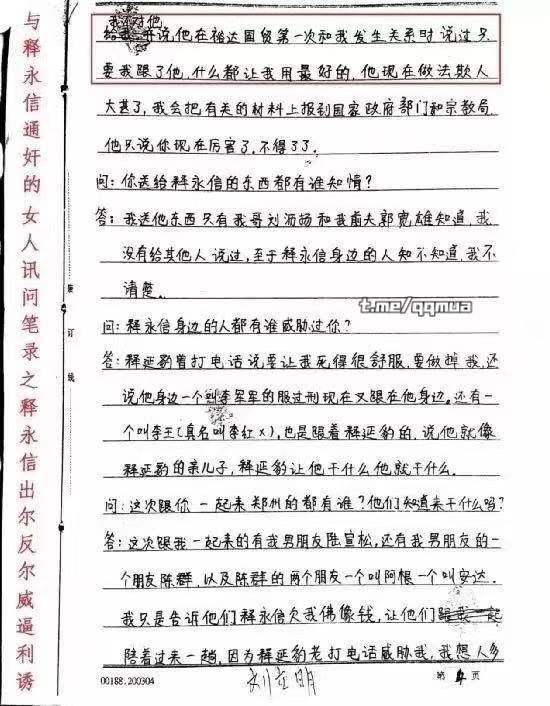 与释永信通奸的女人讯问笔录之释永信出尔反尔威逼利诱
我还对他
给我 说他在裕达国贸第一次和我发生关系时说过只
要我跟了他，什么都让我用最好的，他现在做法欺人
太甚了，我会把有关的材料上报到国家政府部门和宗教局
他只说你现在厉害了，不得了了。
问：你送给释永信的东西都有谁知情？
答：我送他东西只有我哥刘 和我前夫郭宽雄知道，我
没有给其他人说过，至于释永信身边的人知不知道，我不
清楚。
t.me/qqmua
装
订
线
问：释永信身边的人都有谁威胁过你？
答：释延豹曾打电话说要让我死得很舒服，要做掉我，还
说他身边一个 李军军的服过刑现在又跟在他身边。还有一
个叫李王（真名叫李红x），也是跟着释延豹的，说他就像
释延豹的亲儿子，释延豹让他干什么他就干什么。
问：这次跟你一起来郑州的都有谁？他们知道来干什么吗？
答：这次跟我一起来的有我男朋友陆宣松，还有我男朋友的一
个朋友陈群，以及陈群的两个朋友一个叫阿根一个叫安达。
我只是告诉他们释永信欠我佛像钱，让他们跟我一起
陪着过来一趟，因为释延豹老打电话威胁我，我想人多
00188.200304
第4页